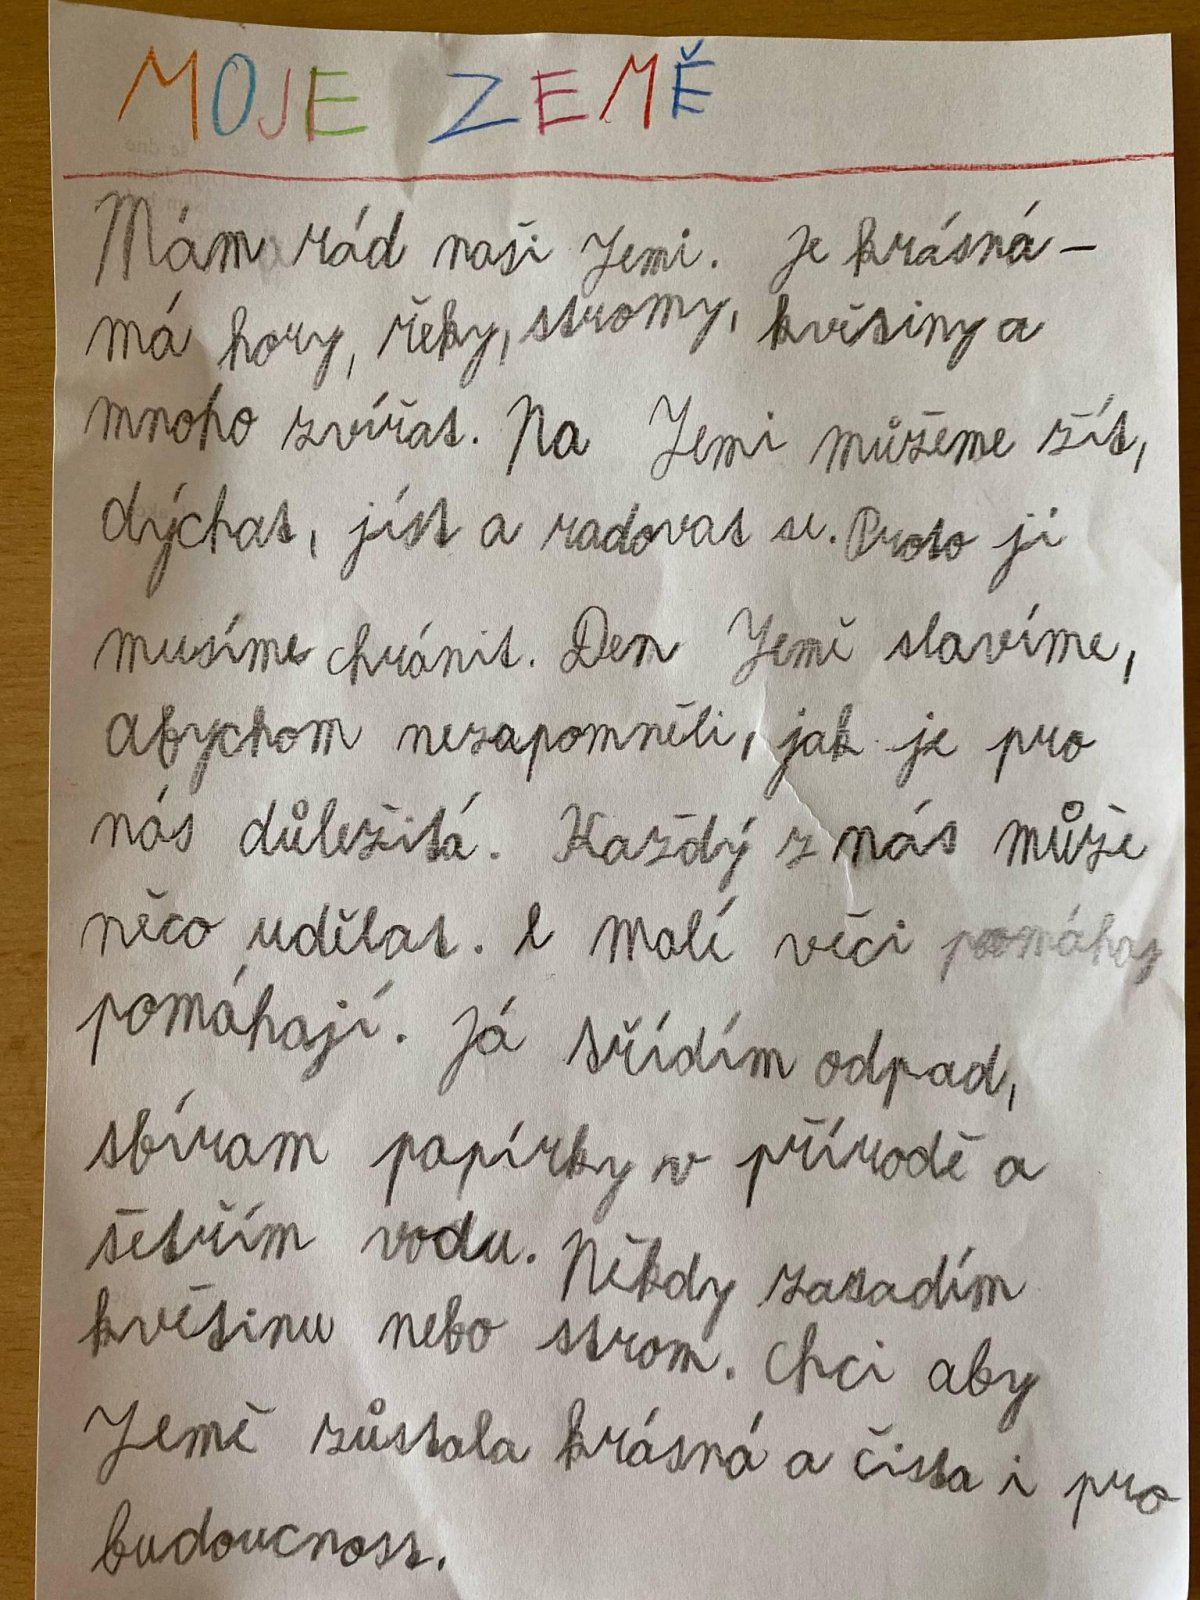 MOJE ZEMĚ
Mám rád naši Zemi. Je krásná –
má hory, řeky, stromy, květiny a
mnoho zvířat. Na Zemi můžeme žít,
dýchat, jíst a radovat se. Proto ji
musíme chránit. Den Země slavíme,
abychom nezapomněli, jak je pro
nás důležitá. Každý z nás může
něco udělat. I malí věci pomáhaj
pomáhají. Já třídím odpad,
sbíram papírky v přírodě a
šetřím vodu. Někdy zasadím
květinu nebo strom. Chci aby
Země zůstala krásná a čista i pro
budoucnost.